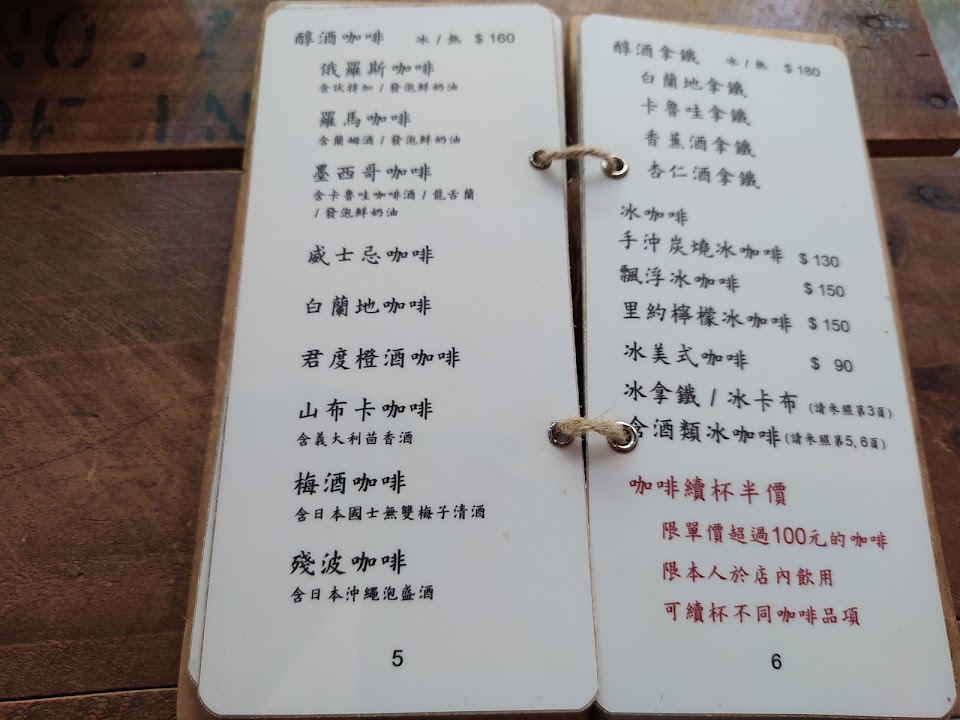 醇酒咖啡 冰 / 熱 $ 160
俄羅斯咖啡
含伏特加 / 發泡鮮奶油
羅馬咖啡
含蘭姆酒 / 發泡鮮奶油
墨西哥咖啡
含卡魯哇咖啡酒 / 龍舌蘭
/ 發泡鮮奶油
威士忌咖啡
白蘭地咖啡
君度橙酒咖啡
山布卡咖啡
含義大利茴香酒
梅酒咖啡
含日本國士無雙梅子清酒
殘波咖啡
含日本沖繩泡盛酒
5
醇酒拿鐵 冰 / 熱 $ 180
白蘭地拿鐵
卡魯哇拿鐵
香蕉酒拿鐵
杏仁酒拿鐵
冰咖啡
手沖炭燒冰咖啡 $ 130
飄浮冰咖啡 $ 150
里約檸檬冰咖啡 $ 150
冰美式咖啡 $ 90
冰拿鐵 / 冰卡布 (請參照第3頁)
含酒類冰咖啡 (請參照第5, 6頁)
咖啡續杯半價
限單價超過100元的咖啡
限本人於店內飲用
可續杯不同咖啡品項
6